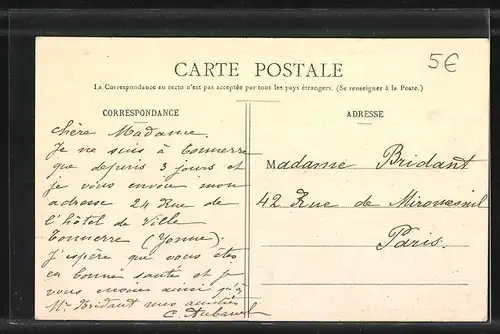 5€
CARTE POSTALE
La Correspondance au recto n'est pas acceptée par tous les pays étrangers. (Se renseigner à la Poste.)
CORRESPONDANCE
chère Madame.
Je ne suis à Tonnerre
que depuis 3 jours et
je vous envoie mon
adresse 24 Rue de
l'hôtel de Ville
Tonnerre (Yonne).
J'espère que vous êtes
en bonne santé et je
vous envoie ainsi qu'à
Mr Bridant mes amitiés
C. Aubanel
ADRESSE
Madame Bridant
42 Rue de Miromesnil
Paris.